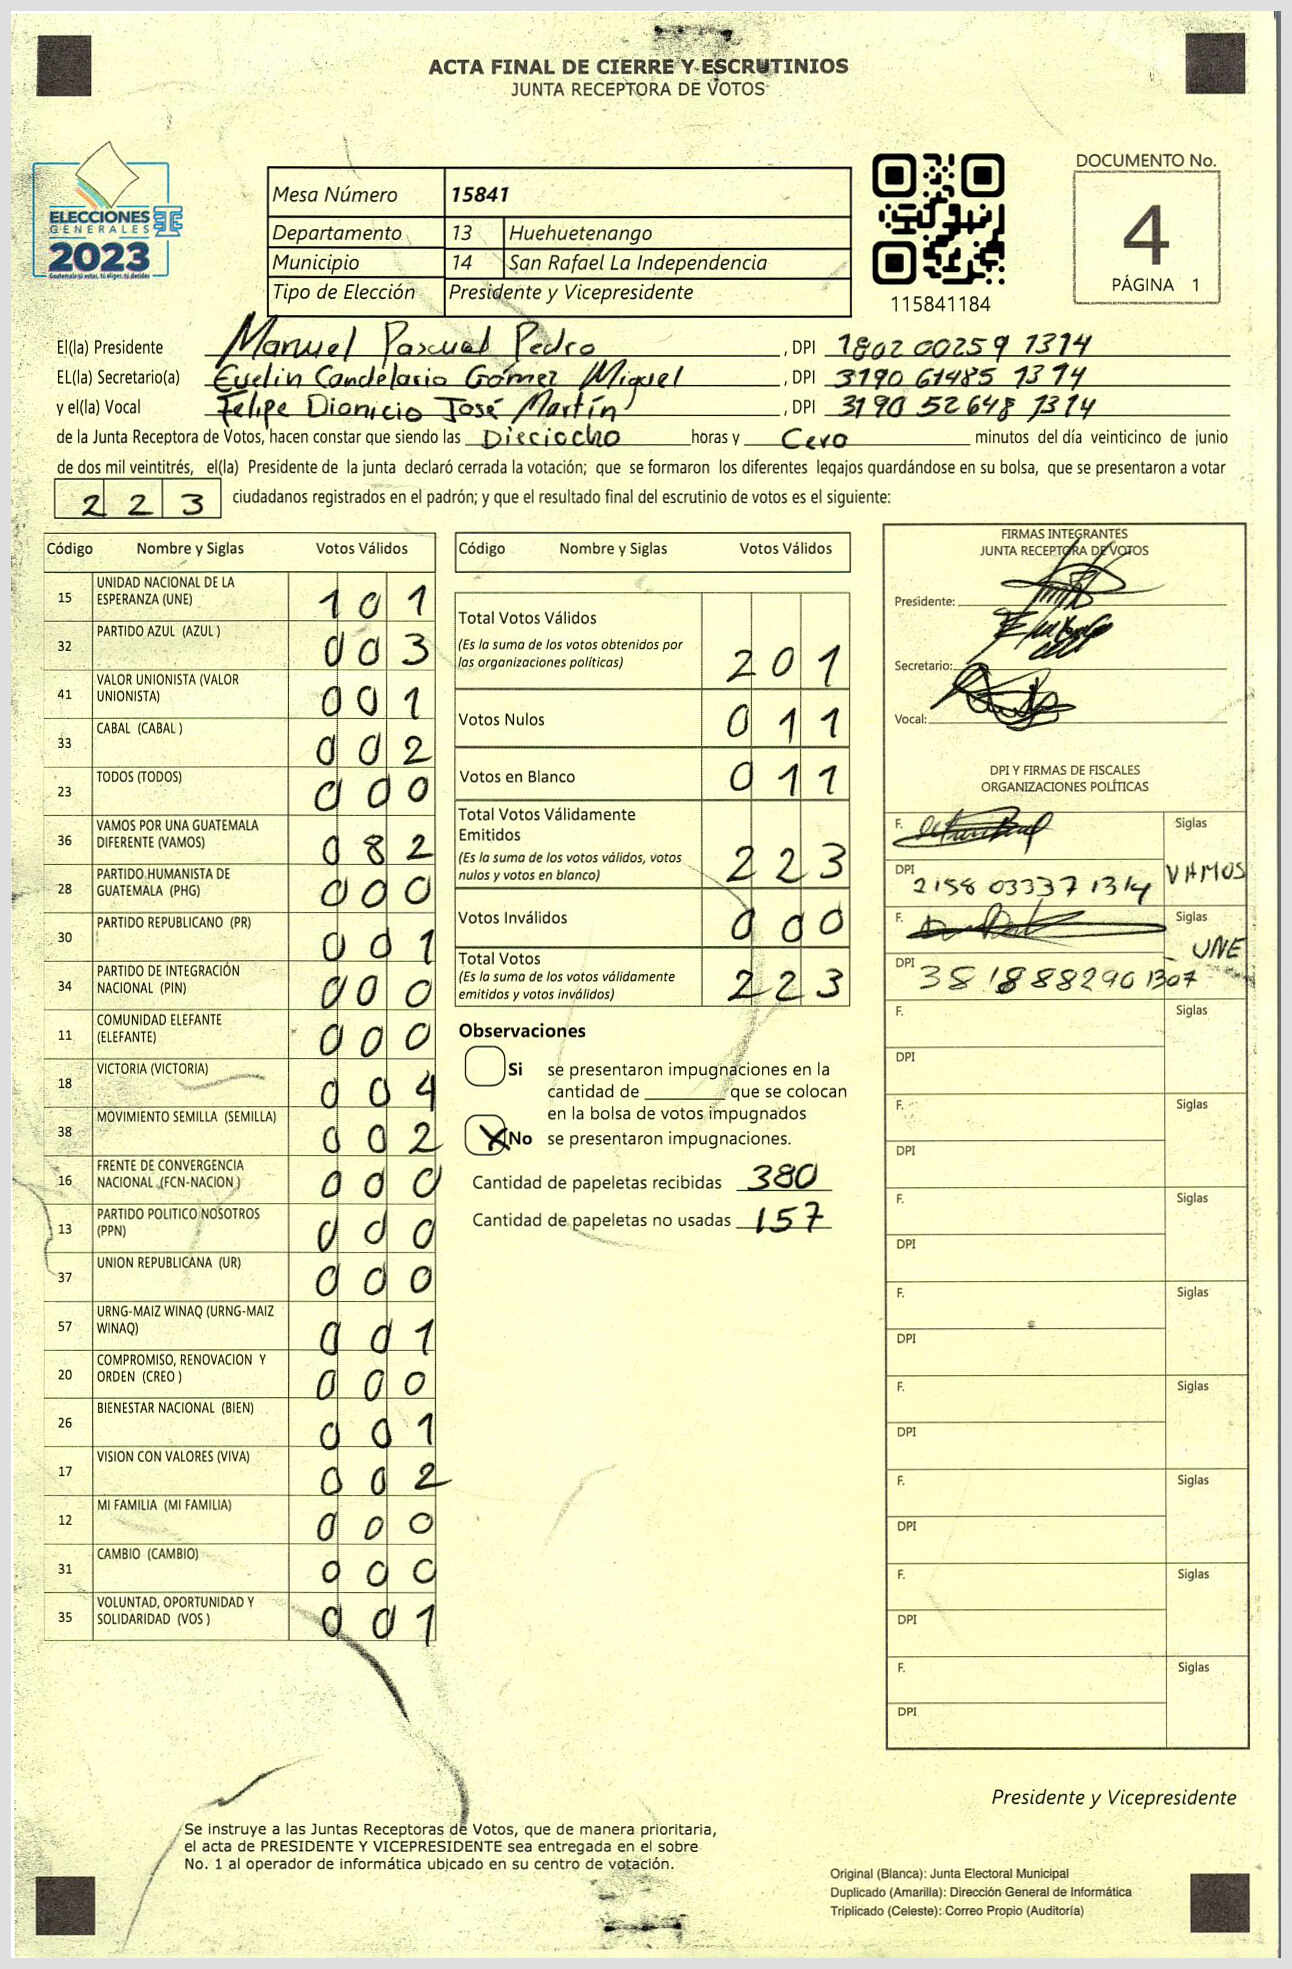 ACTA FINAL DE CIERRE Y ESCRUTINIOS
JUNTA RECEPTORA DE VOTOS
ELECCIONES
GENERALES
2023
Mesa Número 15841
Departamento 13 Huehuetenango
Municipio 14 San Rafael La Independencia
Tipo de Elección Presidente y Vicepresidente
115841184
DOCUMENTO No.
4
PÁGINA 1
El(la) Presidente Manuel Pascual Pedro , DPI 1802 00259 1314
EL(la) Secretario(a) Evelin Candelaria Gómez Miguel , DPI 3190 61485 1314
y el(la) Vocal Felipe Dionicio José Martín , DPI 3190 52648 1314
de la Junta Receptora de Votos, hacen constar que siendo las Dieciocho horas y Cero minutos del día veinticinco de junio
de dos mil veintitrés, el(la) Presidente de la junta declaró cerrada la votación; que se formaron los diferentes legajos guardándose en su bolsa, que se presentaron a votar
2 2 3 ciudadanos registrados en el padrón; y que el resultado final del escrutinio de votos es el siguiente:
Código Nombre y Siglas Votos Válidos
15 UNIDAD NACIONAL DE LA
ESPERANZA (UNE) 1 0 1
32 PARTIDO AZUL (AZUL ) 0 0 3
41 VALOR UNIONISTA (VALOR
UNIONISTA) 0 0 1
33 CABAL (CABAL ) 0 0 2
23 TODOS (TODOS) 0 0 0
36 VAMOS POR UNA GUATEMALA
DIFERENTE (VAMOS) 0 8 2
28 PARTIDO HUMANISTA DE
GUATEMALA (PHG) 0 0 0
30 PARTIDO REPUBLICANO (PR) 0 0 1
34 PARTIDO DE INTEGRACIÓN
NACIONAL (PIN) 0 0 0
11 COMUNIDAD ELEFANTE
(ELEFANTE) 0 0 0
18 VICTORIA (VICTORIA) 0 0 4
38 MOVIMIENTO SEMILLA (SEMILLA) 0 0 2
16 FRENTE DE CONVERGENCIA
NACIONAL (FCN-NACION ) 0 0 0
13 PARTIDO POLITICO NOSOTROS
(PPN) 0 0 0
37 UNION REPUBLICANA (UR) 0 0 0
57 URNG-MAIZ WINAQ (URNG-MAIZ
WINAQ) 0 0 1
20 COMPROMISO, RENOVACION Y
ORDEN (CREO ) 0 0 0
26 BIENESTAR NACIONAL (BIEN) 0 0 1
17 VISION CON VALORES (VIVA) 0 0 2
12 MI FAMILIA (MI FAMILIA) 0 0 0
31 CAMBIO (CAMBIO) 0 0 0
35 VOLUNTAD, OPORTUNIDAD Y
SOLIDARIDAD (VOS ) 0 0 1
Código Nombre y Siglas Votos Válidos
Total Votos Válidos
(Es la suma de los votos obtenidos por
las organizaciones políticas) 2 0 1
Votos Nulos 0 1 1
Votos en Blanco 0 1 1
Total Votos Válidamente
Emitidos
(Es la suma de los votos válidos, votos
nulos y votos en blanco) 2 2 3
Votos Inválidos 0 0 0
Total Votos
(Es la suma de los votos válidamente
emitidos y votos inválidos) 2 2 3
Observaciones
Si se presentaron impugnaciones en la
cantidad de ________ que se colocan
en la bolsa de votos impugnados
X No se presentaron impugnaciones.
Cantidad de papeletas recibidas 380
Cantidad de papeletas no usadas 157
FIRMAS INTEGRANTES
JUNTA RECEPTORA DE VOTOS
Presidente:
Secretario:
Vocal:
DPI Y FIRMAS DE FISCALES
ORGANIZACIONES POLÍTICAS
F. Siglas
DPI 2158 03337 1314 VAMOS
F. Siglas
UNE
DPI 38 188829 0 1307
F. Siglas
DPI
F. Siglas
DPI
F. Siglas
DPI
F. Siglas
DPI
F. Siglas
DPI
F. Siglas
DPI
F. Siglas
DPI
F. Siglas
DPI
Presidente y Vicepresidente
Se instruye a las Juntas Receptoras de Votos, que de manera prioritaria,
el acta de PRESIDENTE Y VICEPRESIDENTE sea entregada en el sobre
No. 1 al operador de informática ubicado en su centro de votación.
Original (Blanca): Junta Electoral Municipal
Duplicado (Amarilla): Dirección General de Informática
Triplicado (Celeste): Correo Propio (Auditoría)